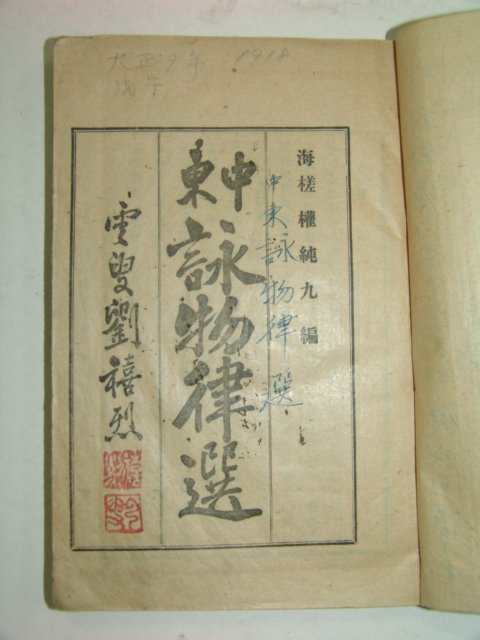 大正9年 1918
戊午
海槎權純九編
中東詠物律選
中東
詠物律選
雲叟劉禧烈